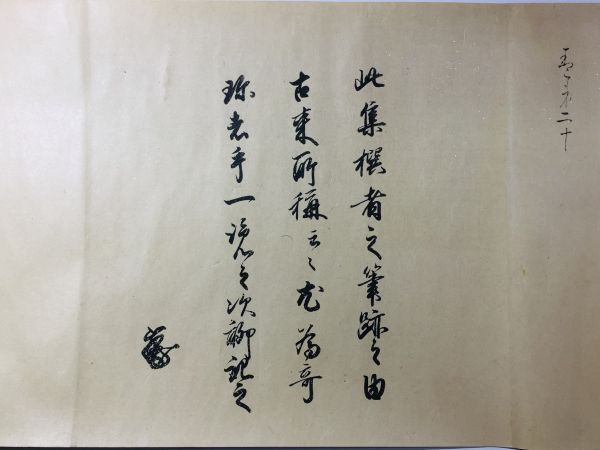 二十
此集撰者之筆跡之由
古来所稱云々尤為奇
珍者乎一覧之次聊記之